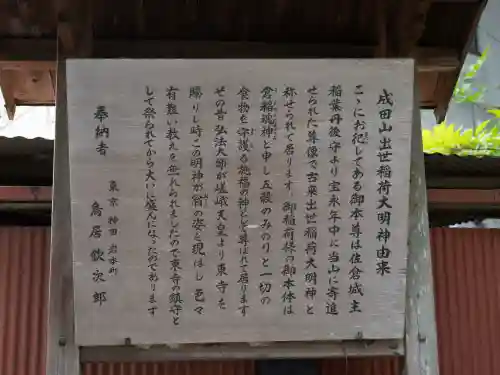 成田山出世稲荷大明神由来
こゝにお祀してある御本尊は佐倉城主
稲葉丹後守より宝永年中に当山に寄進
せられた尊像で古来出世稲荷大明神と
称せられて居ります 御稲荷様の御本体は
倉稲魂神と申し五穀のみのりと一切の
食物を守護る施福の神として尊ばれて居ります
その昔弘法大師が嵯峨天皇より東寺を
賜りし時この明神が翁の姿を現はし色々
有難い教えを垂れられましたので東寺の鎮守と
して祭られてから大いに盛んになったのであります
奉納者
東京 神田 岩本町
鳥居歓次郎